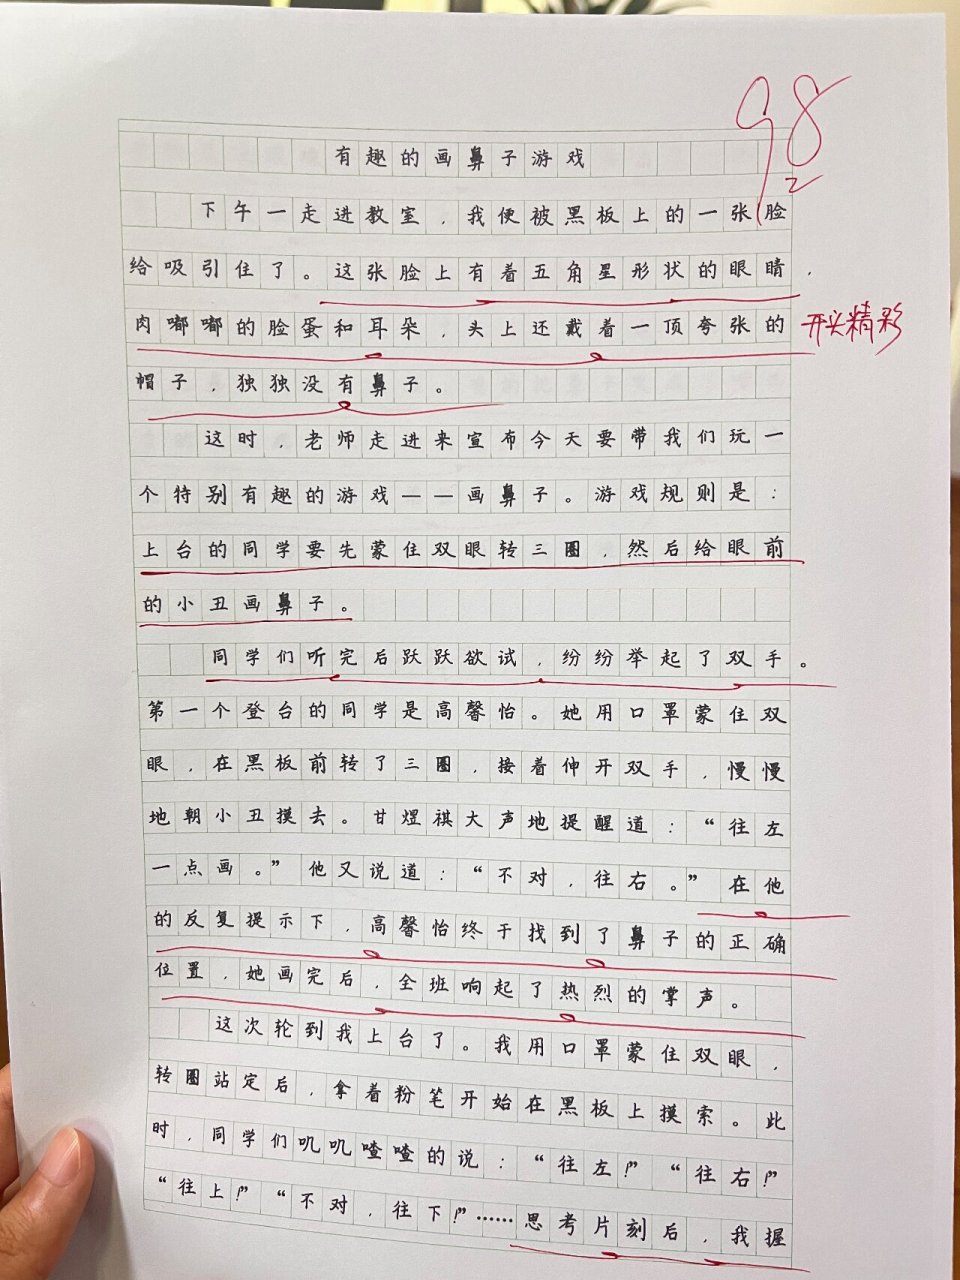 98
2
有趣的画鼻子游戏
下午一走进教室，我便被黑板上的一张脸
给吸引住了。这张脸上有着五角星形状的眼睛，
肉嘟嘟的脸蛋和耳朵，头上还戴着一顶夸张的
开头精彩
帽子，独独没有鼻子。
这时，老师走进来宣布今天要带我们玩一
个特别有趣的游戏——画鼻子。游戏规则是：
上台的同学要先蒙住双眼转三圈，然后给眼前
的小丑画鼻子。
同学们听完后跃跃欲试，纷纷举起了双手。
第一个登台的同学是高馨怡。她用口罩蒙住双
眼，在黑板前转了三圈，接着伸开双手，慢慢
地朝小丑摸去。甘煜祺大声地提醒道：“往左
一点画。”他又说道：“不对，往右。”在他
的反复提示下，高馨怡终于找到了鼻子的正确
位置，她画完后，全班响起了热烈的掌声。
这次轮到我上台了。我用口罩蒙住双眼，
转圈站定后，拿着粉笔开始在黑板上摸索。此
时，同学们叽叽喳喳的说：“往左！”“往右！”
“往上！”“不对，往下！”……思考片刻后，我握